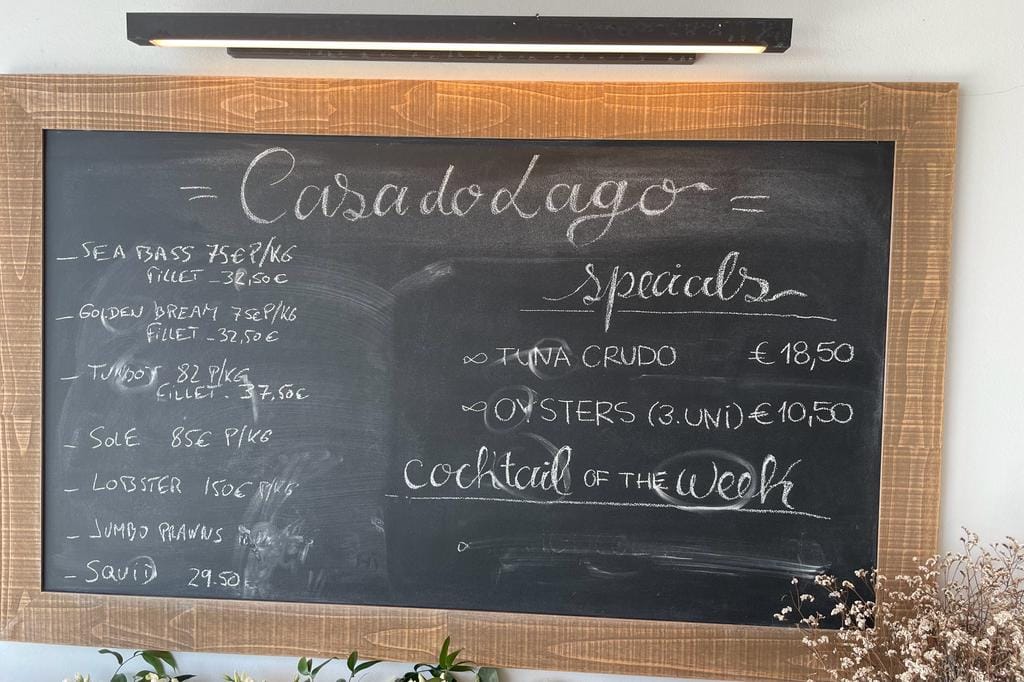 = Casa do Lago =
_ SEA BASS 75€ P/KG
FILLET _ 32,50€
_ GOLDEN BREAM 75€ P/KG
FILLET _ 32,50€
_ TURBOT 82 P/KG
FILLET - 37,50€
_ SOLE 85€ P/KG
_ LOBSTER 150€ P/KG
_ JUMBO PRAWNS
_ SQUID 29.50€
specials
∞ TUNA CRUDO €18,50
∞ OYSTERS (3.UNI) €10,50
cocktail OF THE week